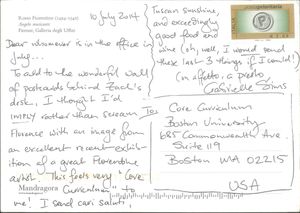 Rosso Fiorentino (1494-1540)
Angelo musicante
Firenze, Galleria degli Uffizi
10 July 2014
Dear whomever is in the office in
July...
To add to the wonderful wall
of postcards behind Zach's
desk, I thought I'd
IMPLY rather than scream
Florence with an image from
an excellent recent exhibit-
ition of a great Florentine
artist. This feels very "Core
Curriculum" to
me! I send cari saluti,
Tuscan sunshine,
and exceedingly
good food and
wine (oh, well, I would send
these last 3 things if I could!)
Con affetto, a presto
Gabrielle Sims
posta prioritaria
To:
Core Curriculum
Boston University
685 Commonwealth Ave.
Suite 119
Boston MA 02215
USA
Mandragora